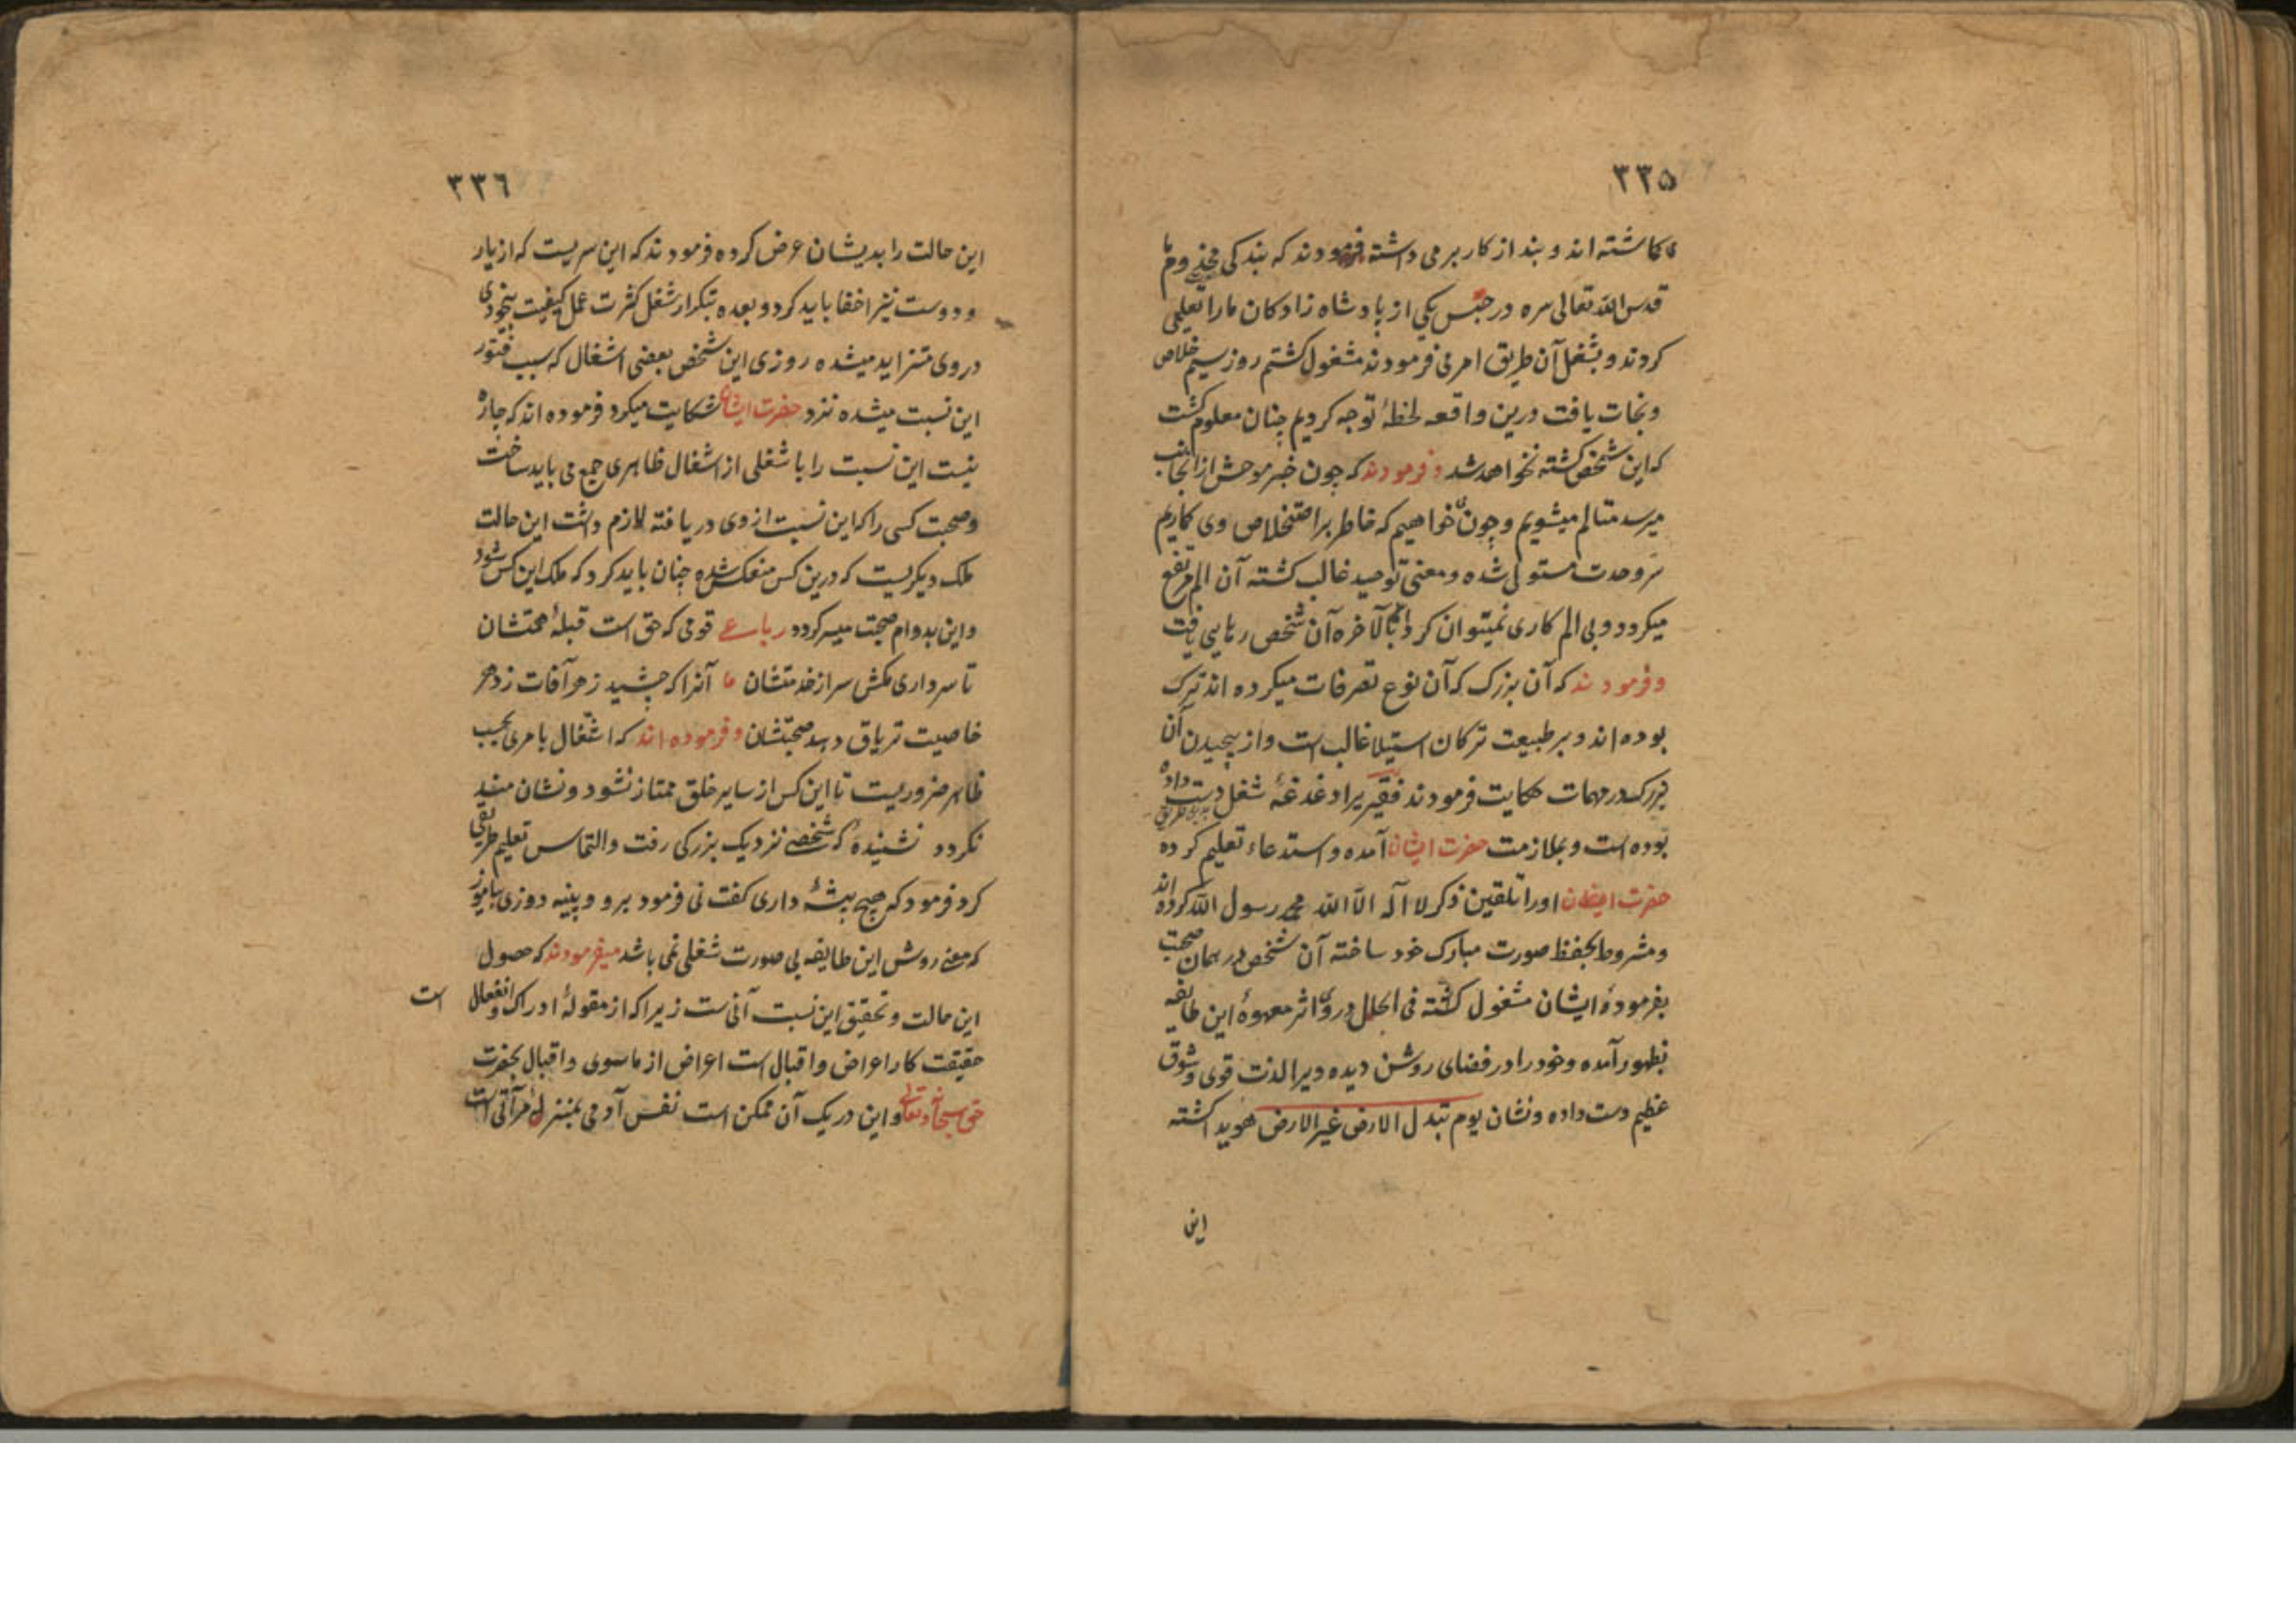 ٣٣۵
می کماشته اند و بند از کار بر می داشته فرمودند که بندکی مخدوم ما
قدس الله تعالی سره در حبس یکی از بادشاه زادکان ما را تعلیمی
کردند و بشغل آن طریق امر می فرمودند مشغول کشتم روز سیم خلاص
و نجات یافت درین واقعه لحظهٔ توجه کردیم چنان معلوم کشت
که این شخص کشته نخواهد شد و فرمودند که چون خبر موحش از آنجانب
میرسد متالم میشویم و چون خواهیم که خاطر بر استخلاص وی کماریم
سر وحدت مستولی شده و معنی توحید غالب کشته آن الم مرتفع
میکردد و بی الم کاری نمیتوان کرد بالآخره آن شخص رهایی یافت
و فرمودند که آن بزرک که آن نوع تصرفات میکرده اند ترک
بوده اند و بر طبیعت ترکان استیلا غالب است و از پیچیدن آن
بزرک در مهمات حکایت فرمودند فقیریرا دغدغهٔ شغل دست داده
بوده است و بملازمت حضرت ایشان آمده و استدعاء تعلیم کرده
حضرت ایشان اورا تلقین ذکر لا اله الا الله محمد رسول الله کرده اند
و مشروط بحفظ صورت مبارک خود ساخته آن شخص در همان صحبت
بفرمودهٔ ایشان مشغول کشته فی الحال در وی اثر معهودهٔ این طایفه
بظهور آمده و خود را در فضای روشن دیده و یرا لذت قوی و شوق
عظیم دست داده و نشان یوم تبدل الارض غیر الارض هویدا کشته
این
٣٣٦
این حالت را بدیشان عرض کرده فرمودند که این سریست که از یار
و دوست نیز اخفا باید کرد و بعده بتکرار شغل کثرت عمل کیفیت بیخودی
در وی متزاید میشده روزی این شخص بعضی اشغال که سبب فتور
این نسبت میشده نزد حضرت ایشان شکایت میکرد فرموده اند که چاره
نیست این نسبت را با شغلی از اشغال ظاهری جمع می باید ساخت
و صحبت کسی را که این نسبت از وی دریافته لازم داشت این حالت
ملک دیکریست که درین کس منعکس شده چنان باید کرد که ملک این کس شود
و این بدوام صحبت میسر کردد رباعی قومی که حق است قبلهٔ همتشان
تا سر داری مکش سر از خدمتشان ما آنرا که چشید زهر آفات ز دهر
خاصیت تریاق دهد صحبتشان و فرموده اند که اشتغال بامری بحسب
ظاهر ضروریست تا این کس از سایر خلق ممتاز نشود و نشان مند
نکردد نشنیدهٔ که شخصی نزدیک بزرکی رفت و التماس تعلیم طریقی
کرد فرمود که هیچ پیشهٔ داری کفت نی فرمود برو و پینه دوزی بیاموز
که معنی روش این طایفه بی صورت شغلی نمی باشد میفرمودند که حصول
این حالت و تحقیق این نسبت آنی ست زیرا که از مقولهٔ ادراک و انفعال است
حقیقت کار اعراض و اقبال است اعراض از ماسوی و اقبال بحضرت
حق سبحانه و تعالی و این در یک آن ممکن است نفس آدمی بمنزلهٔ مرآتی است